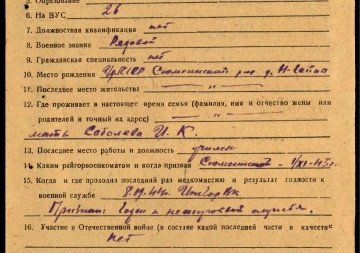 5. Образование
6. На ВУС 26
7. Должностная квалификация нет
8. Военное звание Рядовой
9. Гражданская специальность нет
10. Место рождения УдАССР Сюмсинский р-н д. Н-Гайна
11. Последнее место жительства — " —
12. Где проживает в настоящее время семья (фамилия, имя и отчество жены или
родителей и точный их адрес) — " —
мать Соболева И. К.
13. Последнее место работы и должность
14. Каким райгорвоенкоматом и когда призван Сюмсинский
15. Когда и где проходил раз последний медкомиссию и результат годности к
военной службе
Признан: Годен к нестроевой службе.
16. Участие в Отечественной войне (в составе какой последней части в качестве
Нет